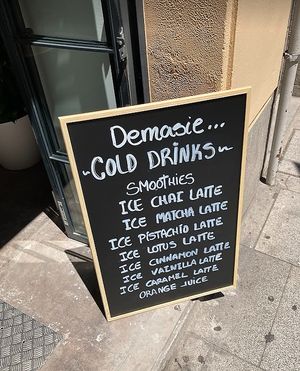 Demasie...
COLD DRINKS
SMOOTHIES
ICE CHAI LATTE
ICE MATCHA LATTE
ICE PISTACHIO LATTE
ICE LOTUS LATTE
ICE CINNAMON LATTE
ICE VAINILLA LATTE
ICE CARAMEL LATTE
ORANGE JUICE